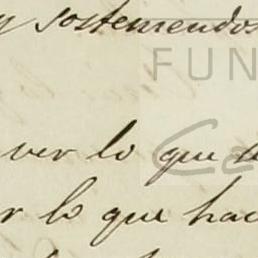 y sosteniendos
FUN
ver lo que
r lo que hac